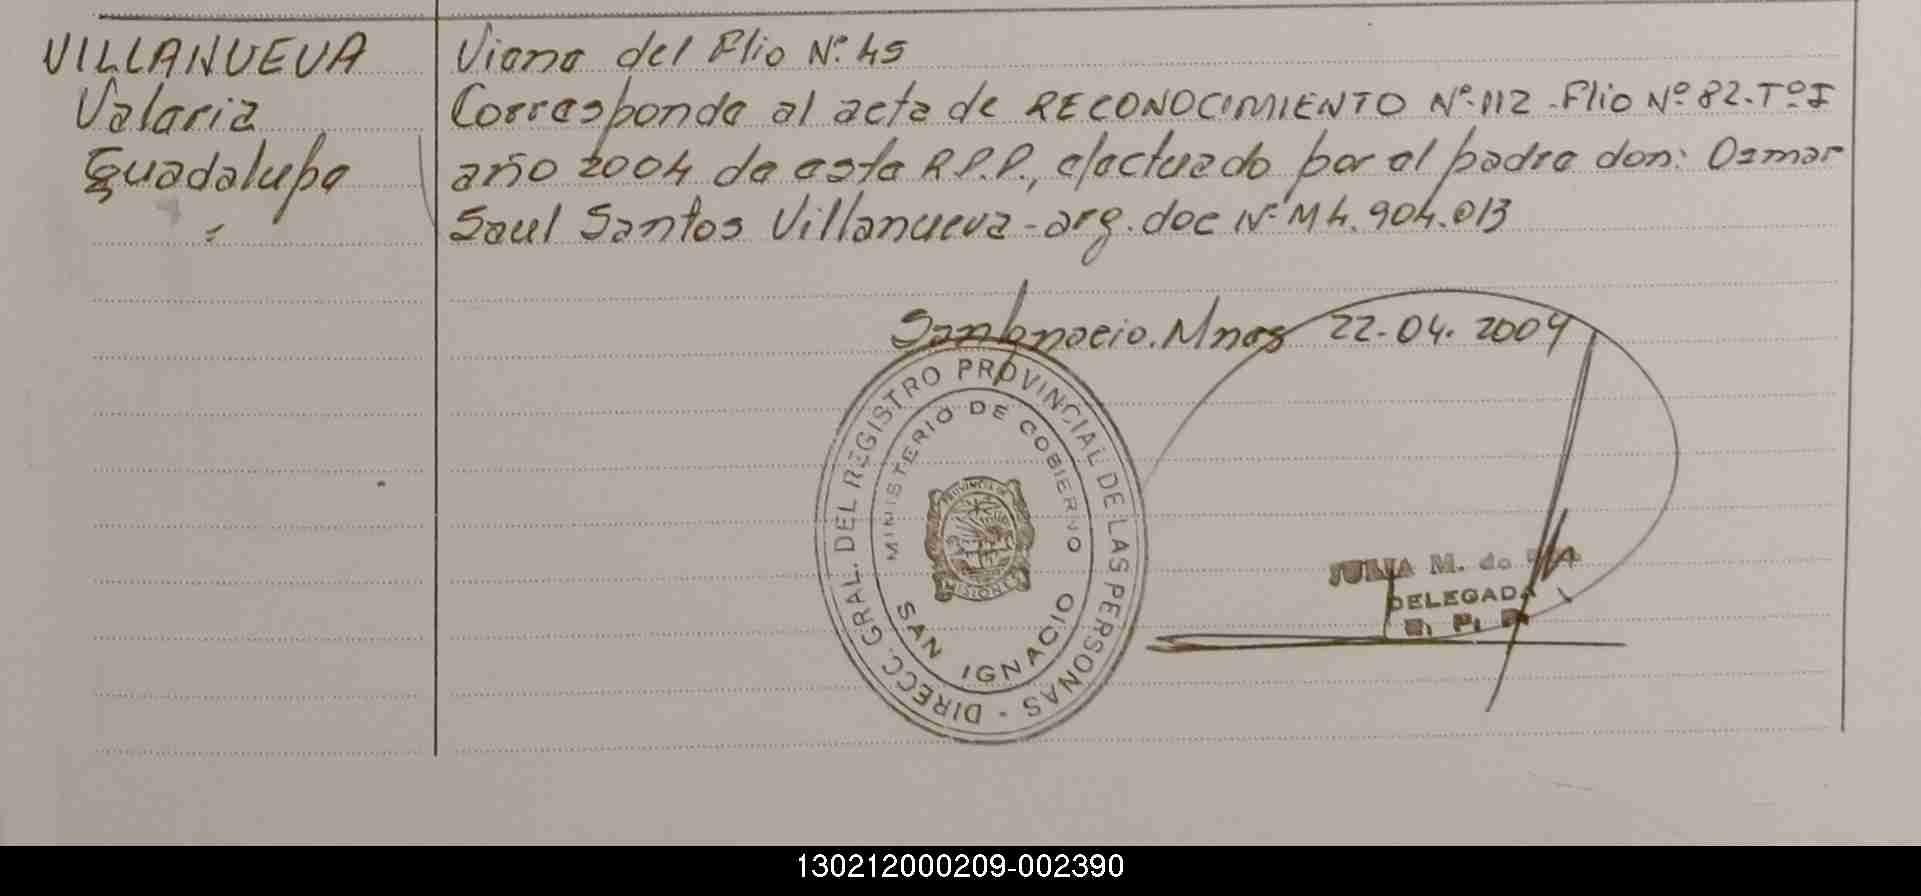 VILLANUEVA
Valaria
Guadalupe
=
Viene del Flio Nº 45
Corresponde al acta de RECONOCIMIENTO Nº 112 - Flio Nº 82 - Tº I
año 2004 de esta R.P.P., efectuado por el padre don: Osmar
Saul Santos Villanueva - arg. doc Nº M 4.904.013
San Ignacio. Mnes 22-04-2004
DIRECC. GRAL. DEL REGISTRO PROVINCIAL DE LAS PERSONAS -
MINISTERIO DE GOBIERNO
PROVINCIA DE
MISIONES
SAN IGNACIO
JULIA M. de
DELEGADA
R. P. P.
130212000209-002390